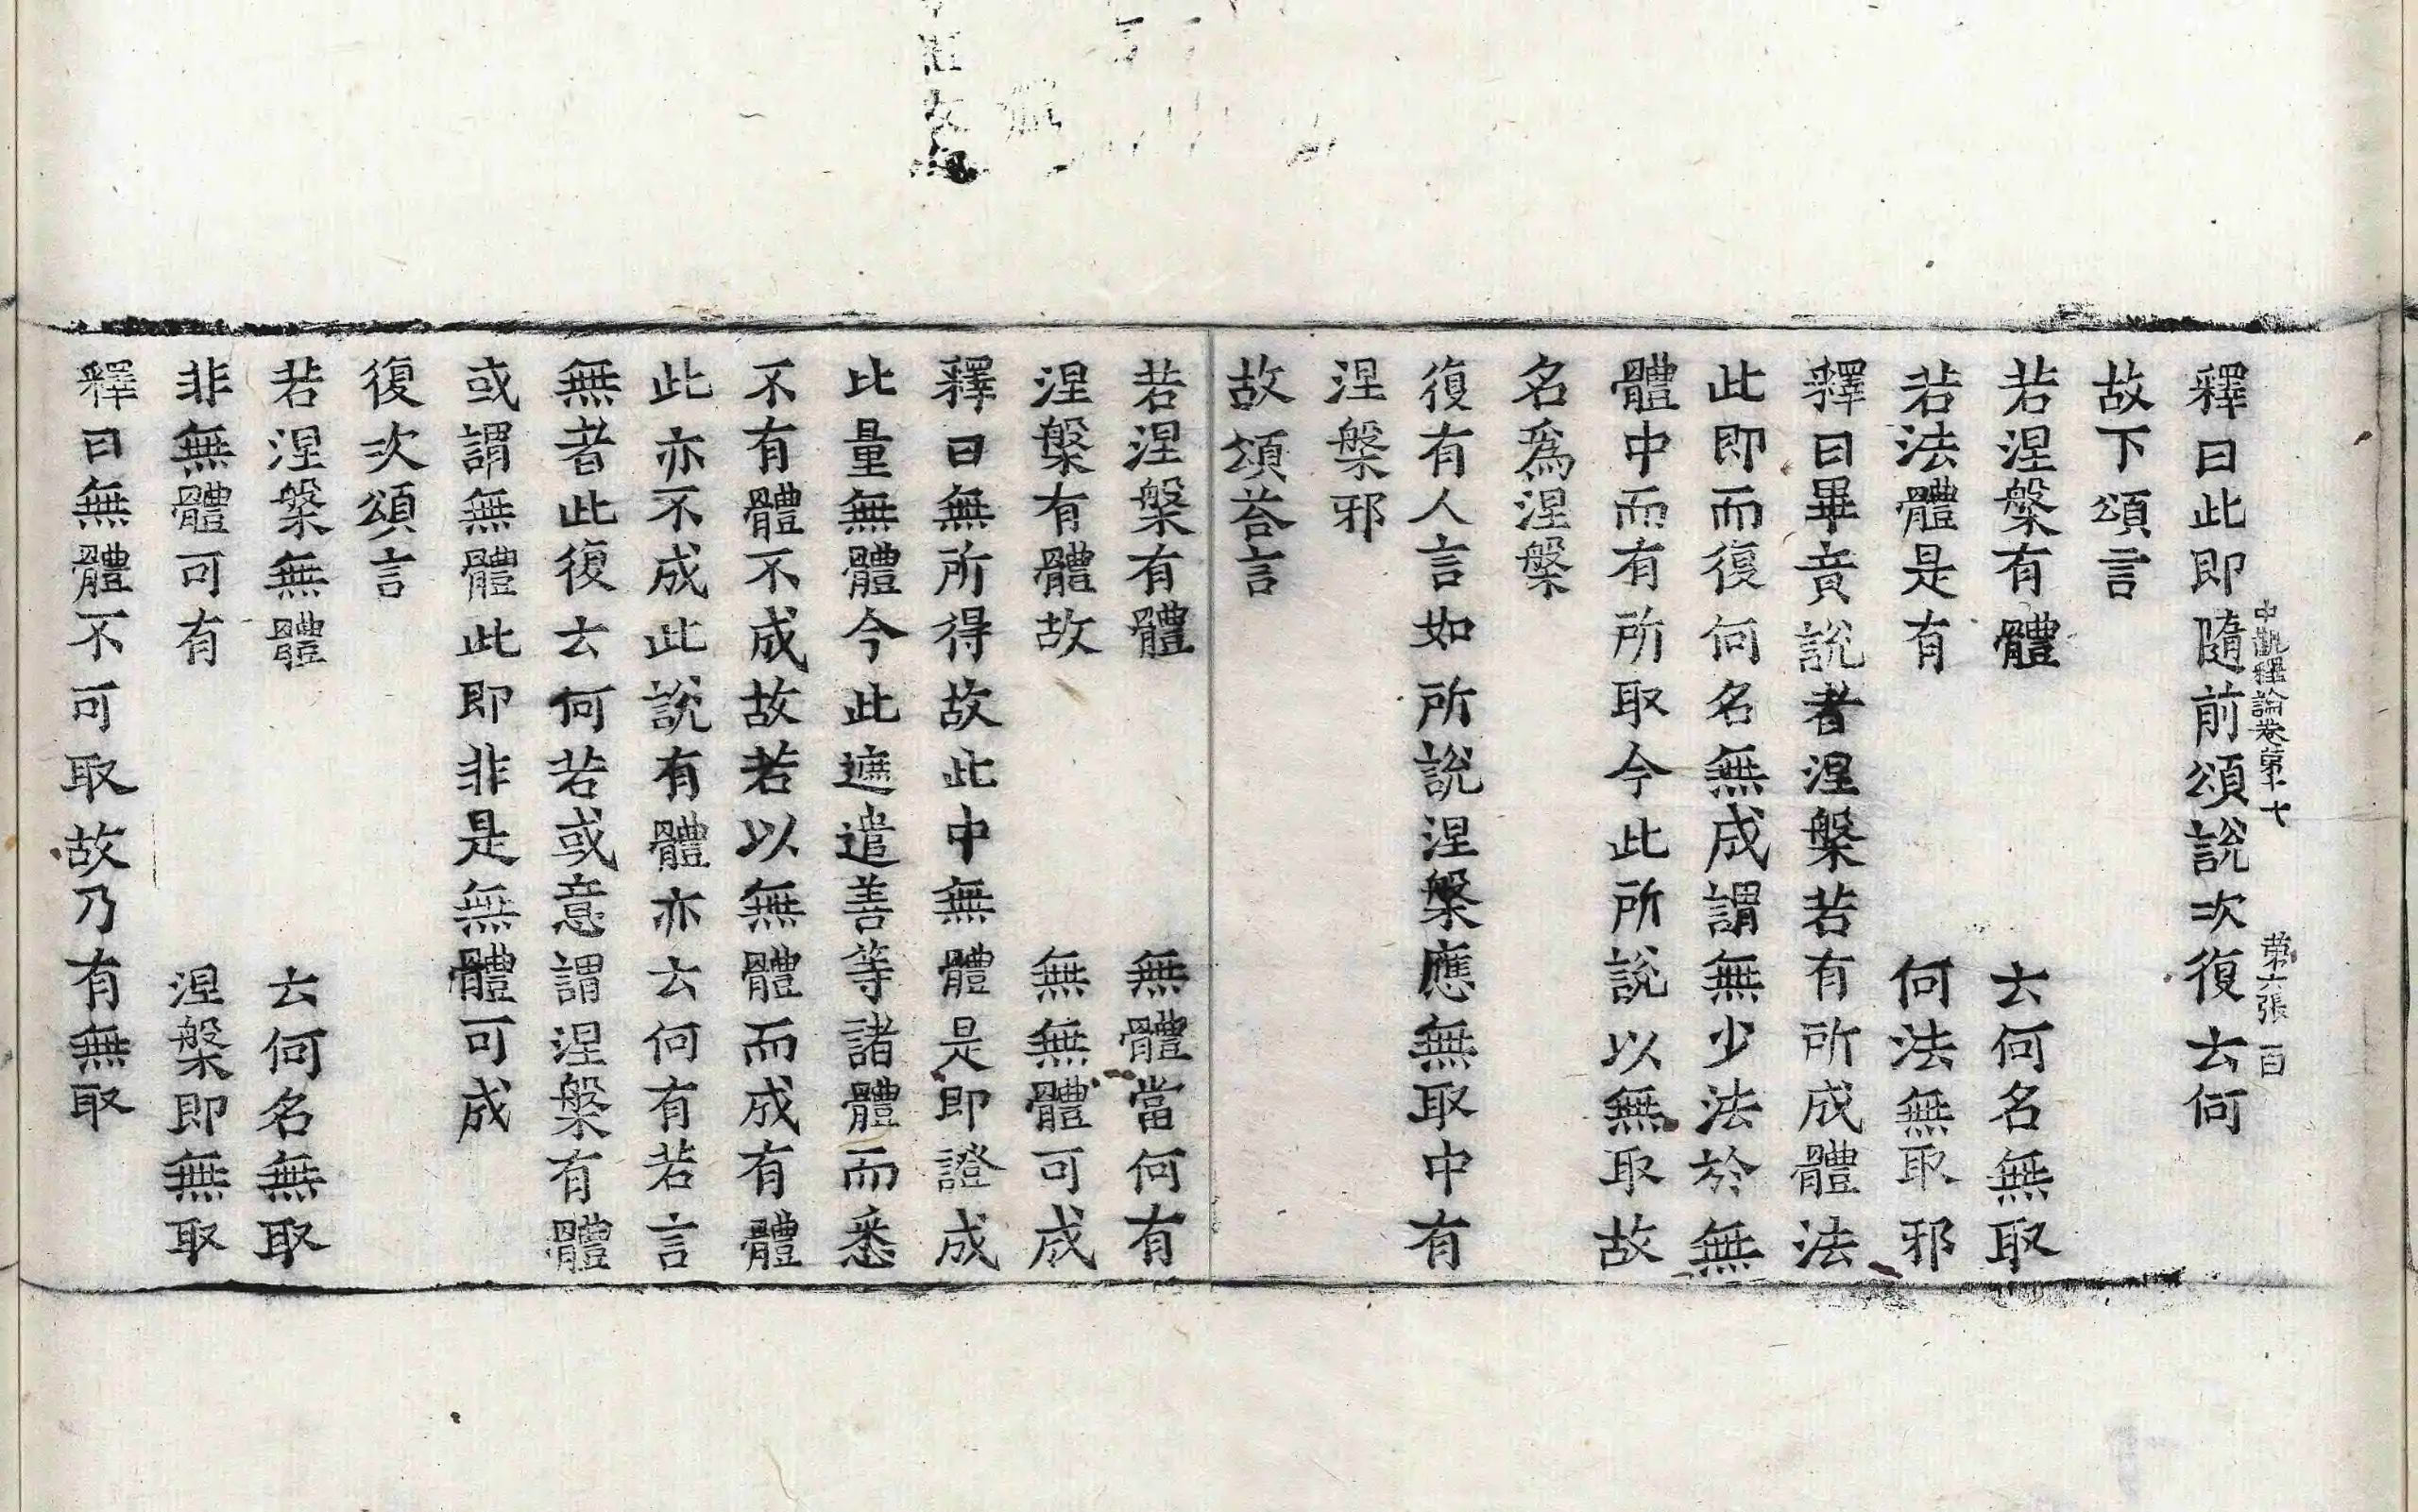 釋曰此即隨前頌說次復云何
中觀釋論卷第十七 第六張 百
故下頌言
若涅槃有體 云何名無取
若法體是有 何法無取邪
釋曰畢竟說者涅槃若有所成體法
此即而復何名無成謂無少法於無
體中而有所取今此所說以無取故
名爲涅槃
復有人言如所說涅槃應無取中有
涅槃邪
故頌荅言
若涅槃有體 無體當何有
涅槃有體故 無無體可成
釋曰無所得故此中無體是即證成
比量無體今此遮遣善等諸體而悉
不有體不成故若以無體而成有體
此亦不成此說有體亦云何有若言
無者此復云何若或意謂涅槃有體
或謂無體此即非是無體可成
復次頌言
若涅槃無體 云何名無取
非無體可有 涅槃即無取
釋曰無體不可取故乃有無取